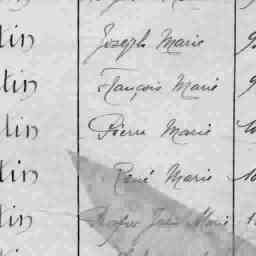 tin Joseph Marie
tin François Marie
tin Pierre Marie
tin René Marie
tin Jean Marie